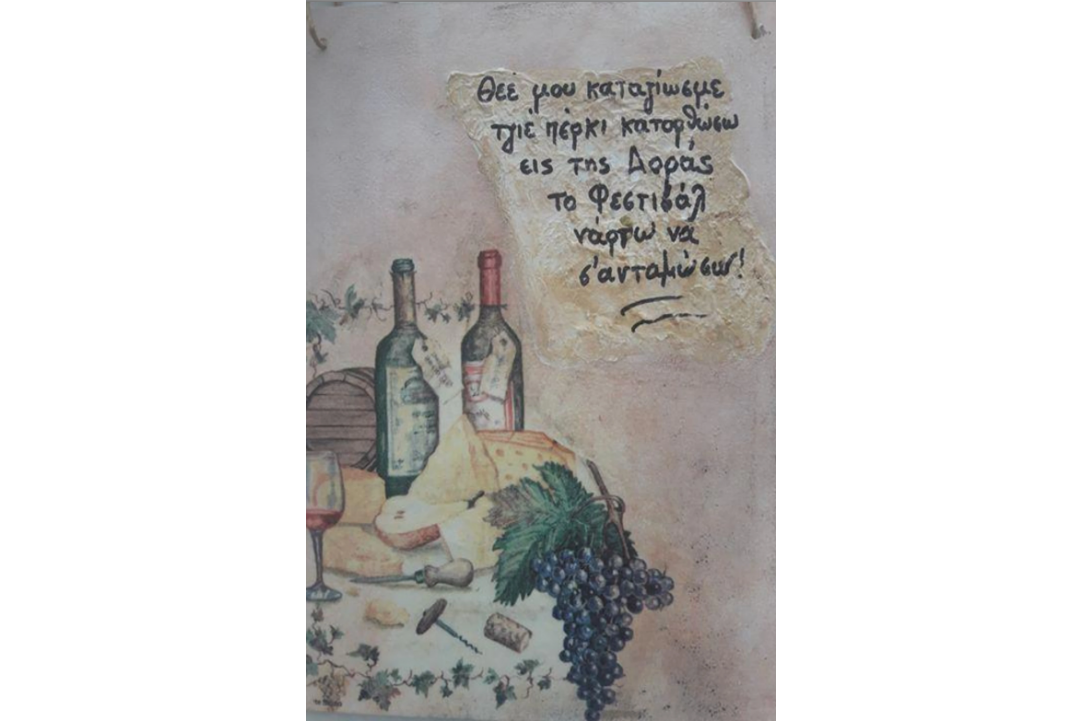 Θεέ μου καταξίωσμε
τζιέ πέρκι κατορθώσω
εις της Δοράς
το Φεστιβάλ
νάρτω να
σ'ανταμώσω!